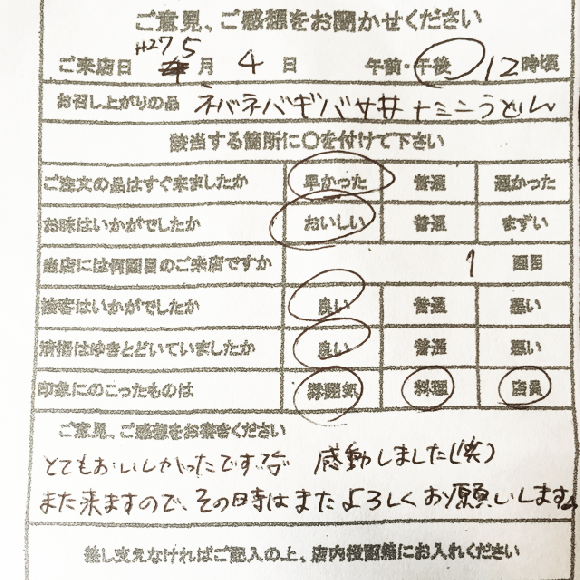 ご意見、ご感想をお聞かせください
H27 5
ご来店日 月 4 日 午前・午後 12時頃
お召し上がりの品 ネバネバギバサ丼+ミニうどん
該当する箇所に〇を付けて下さい
ご注文の品はすぐ来ましたか 早かった 普通 遅かった
お味はいかがでしたか おいしい 普通 まずい
当店には何回目のご来店ですか 1 回目
接客はいかがでしたか 良い 普通 悪い
清掃はゆきとどいていましたか 良い 普通 悪い
印象にのこったものは 雰囲気 料理 店員
ご意見、ご感想をお書きください
とてもおいしかったです 感動しました(笑)
また来ますので、その時はまたよろしくお願いします。
差し支えなければご記入の上、店内投函箱にお入れください